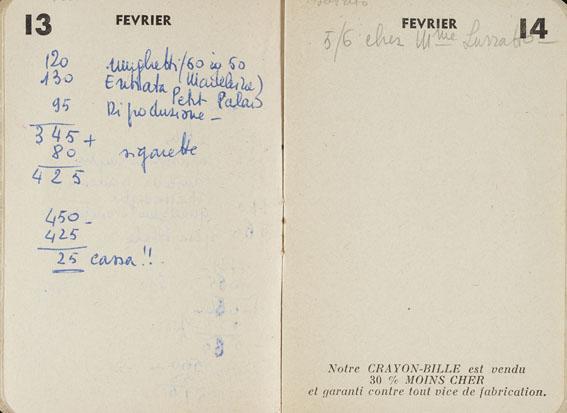 13 FEVRIER
120 mughetti/60 in 50
130 Entrata (Madeleine)
Petit Palais
95 Riproduzione -
345 +
80 sigarette
425
450 -
425
25 cassa!!
FEVRIER 14
5/6 chez Mme Luzzatto
Notre CRAYON-BILLE est vendu
30 % MOINS CHER
et garanti contre tout vice de fabrication.